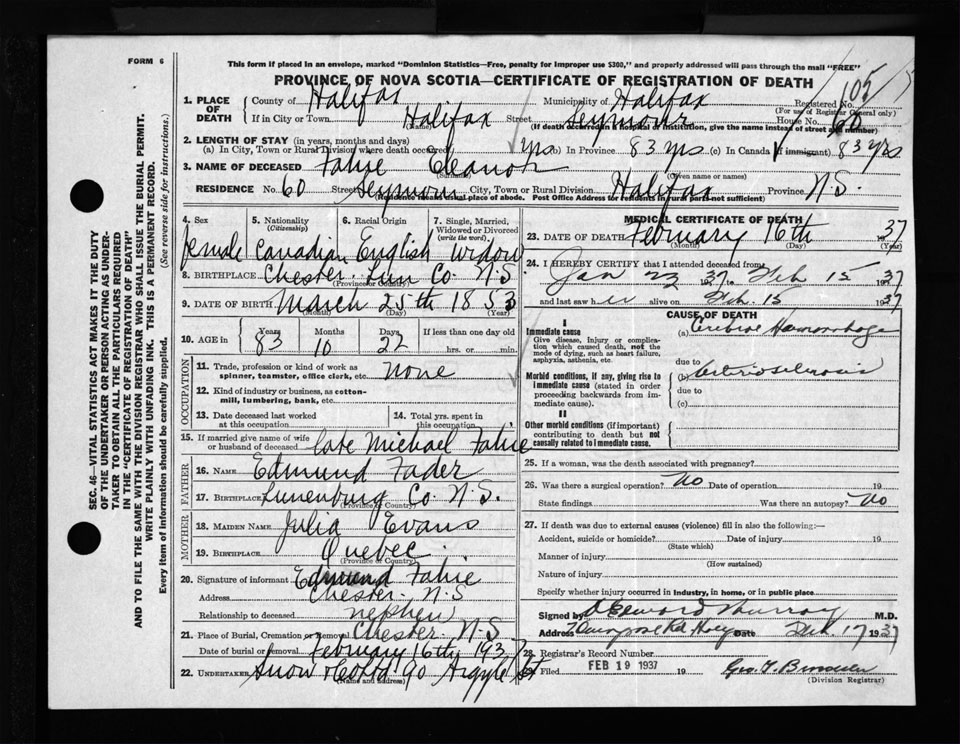 FORM 6
This form if placed in an envelope, marked "Dominion Statistics—Free, penalty for improper use $300," and properly addressed will pass through the mail "FREE"
PROVINCE OF NOVA SCOTIA—CERTIFICATE OF REGISTRATION OF DEATH
105
1. PLACE OF DEATH County of Halifax Municipality of Halifax Registered No.
(For use of Registrar General only)
If in City or Town Halifax Street Seymour House No. 60
(Name) (If death occurred in a hospital or institution, give the name instead of street and number)
2. LENGTH OF STAY (in years, months and days)
(a) In City, Town or Rural Division where death occurred yrs (b) In Province 83 yrs (c) In Canada if immigrant) 83 yrs
3. NAME OF DECEASED Fahie Eleanor
(Surname) (Given name or names)
RESIDENCE No. 60 Street Seymour City, Town or Rural Division Halifax Province N.S.
(Residence means usual place of abode. Post Office Address for residents in rural parts not sufficient)
4. Sex 5. Nationality (Citizenship) 6. Racial Origin 7. Single, Married, Widowed or Divorced (write the word)
female Canadian English Widow
8. BIRTHPLACE Chester Lun Co N.S
(Province or Country)
9. DATE OF BIRTH March 25th 1853
(Month) (Day) (Year)
10. AGE in Years Months Days If less than one day old
83 10 22 hrs. or min.
OCCUPATION
11. Trade, profession or kind of work as spinner, teamster, office clerk, etc. none
12. Kind of industry or business, as cotton-mill, lumbering, bank, etc.
13. Date deceased last worked at this occupation 14. Total yrs. spent in this occupation
15. If married give name of wife or husband of deceased late Michael Fahie
FATHER
16. NAME Edmund Fader
17. BIRTHPLACE Lunenburg Co. N.S.
(Province or Country)
MOTHER
18. MAIDEN NAME Julia Evans
19. BIRTHPLACE Quebec
(Province or Country)
20. Signature of informant Edmund Fahie
Address Chester N.S
Relationship to deceased nephew
21. Place of Burial, Cremation or Removal Chester N.S
Date of burial or removal February 16th 1937
22. UNDERTAKER Snow & Co Ltd 90 Argyle St
(Name and address)
MEDICAL CERTIFICATE OF DEATH
23. DATE OF DEATH February 16th 1937
(Month) (Day) (Year)
24. I HEREBY CERTIFY that I attended deceased from
Jan 23 1937 to Feb 15 1937
and last saw her alive on Feb. 15 1937
CAUSE OF DEATH
I
Immediate cause (a) Cerebral Hæmorrhage
Give disease, injury or complication which caused death, not the mode of dying, such as heart failure, asphyxia, asthenia, etc.
due to
Morbid conditions, if any, giving rise to immediate cause (stated in order proceeding backwards from immediate cause). (b) Arteriosclerosis
due to
(c)
II
Other morbid conditions (if important) contributing to death but not causally related to immediate cause.
25. If a woman, was the death associated with pregnancy?
26. Was there a surgical operation? No Date of operation 19
State findings Was there an autopsy? No
27. If death was due to external causes (violence) fill in also the following:—
Accident, suicide or homicide? Date of injury 19
(State which)
Manner of injury
(How sustained)
Nature of injury
Specify whether injury occurred in industry, in home, or in public place
Signed by Murray M.D.
Address Date Feb 17 1937
28. Registrar's Record Number
29. Filed FEB 19 1937 19
(Division Registrar)
SEC. 46—VITAL STATISTICS ACT MAKES IT THE DUTY
OF THE UNDERTAKER OR PERSON ACTING AS UNDER-
TAKER TO OBTAIN ALL THE PARTICULARS REQUIRED
IN THE "CERTIFICATE OF REGISTRATION OF DEATH"
AND TO FILE THE SAME WITH THE DIVISION REGISTRAR WHO SHALL ISSUE THE BURIAL PERMIT.
WRITE PLAINLY WITH UNFADING INK. THIS IS A PERMANENT RECORD.
Every item of information should be carefully supplied. (See reverse side for instructions.)